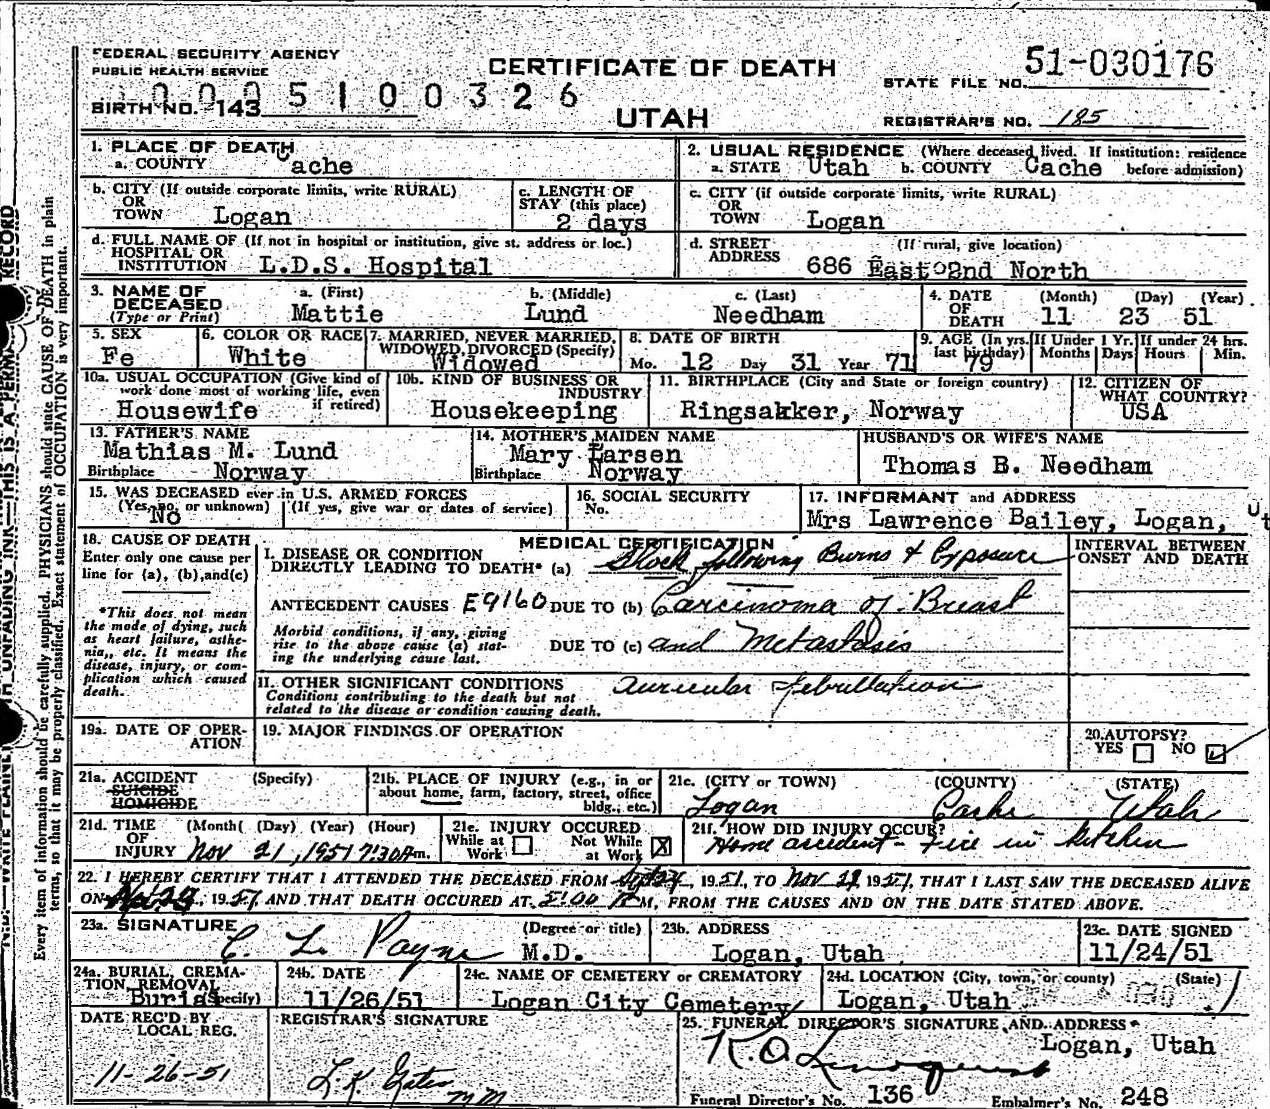 FEDERAL SECURITY AGENCY
PUBLIC HEALTH SERVICE
CERTIFICATE OF DEATH
UTAH
STATE FILE NO. 51-030176
BIRTH NO. 143
0005100326
REGISTRAR'S NO. 185
1. PLACE OF DEATH
a. COUNTY Cache
2. USUAL RESIDENCE (Where deceased lived. If institution: residence before admission)
a. STATE Utah b. COUNTY Cache
b. CITY (If outside corporate limits, write RURAL)
OR
TOWN Logan
c. LENGTH OF
STAY (this place)
2 days
c. CITY (if outside corporate limits, write RURAL)
OR
TOWN Logan
d. FULL NAME OF (If not in hospital or institution, give st. address or loc.)
HOSPITAL OR
INSTITUTION L.D.S. Hospital
d. STREET (If rural, give location)
ADDRESS 686 East 2nd North
3. NAME OF
DECEASED
(Type or Print)
a. (First) b. (Middle) c. (Last)
Mattie Lund Needham
4. DATE
OF
DEATH
(Month) (Day) (Year)
11 23 51
5. SEX
Fe
6. COLOR OR RACE
White
7. MARRIED, NEVER MARRIED,
WIDOWED, DIVORCED (Specify)
Widowed
8. DATE OF BIRTH
Mo. 12 Day 31 Year 71
9. AGE (In yrs.
last birthday)
79
If Under 1 Yr.
Months Days
If under 24 hrs.
Hours Min.
10a. USUAL OCCUPATION (Give kind of
work done most of working life, even
if retired)
Housewife
10b. KIND OF BUSINESS OR
INDUSTRY
Housekeeping
11. BIRTHPLACE (City and State or foreign country)
Ringsakker, Norway
12. CITIZEN OF
WHAT COUNTRY?
USA
13. FATHER'S NAME
Mathias M. Lund
Birthplace Norway
14. MOTHER'S MAIDEN NAME
Mary Larsen
Birthplace Norway
HUSBAND'S OR WIFE'S NAME
Thomas B. Needham
15. WAS DECEASED ever in U.S. ARMED FORCES
(Yes, no, or unknown) (If yes, give war or dates of service)
No
16. SOCIAL SECURITY
No.
17. INFORMANT and ADDRESS
Mrs Lawrence Bailey, Logan, Ut
18. CAUSE OF DEATH
Enter only one cause per
line for (a), (b), and (c)
*This does not mean
the mode of dying, such
as heart failure, asthe-
nia,, etc. It means the
disease, injury, or com-
plication which caused
death.
MEDICAL CERTIFICATION
I. DISEASE OR CONDITION
DIRECTLY LEADING TO DEATH* (a) Shock following Burns & Exposure
ANTECEDENT CAUSES E9160 DUE TO (b) Carcinoma of Breast
Morbid conditions, if any, giving
rise to the above cause (a) stat-
ing the underlying cause last.
DUE TO (c) and Metastasis
II. OTHER SIGNIFICANT CONDITIONS
Conditions contributing to the death but not
related to the disease or condition causing death.
Auricular Febrillation
INTERVAL BETWEEN
ONSET AND DEATH
19a. DATE OF OPER-
ATION
19. MAJOR FINDINGS OF OPERATION
20. AUTOPSY?
YES NO
21a. ACCIDENT (Specify)
SUICIDE
HOMICIDE
21b. PLACE OF INJURY (e.g., in or
about home, farm, factory, street, office
bldg., etc.)
21c. (CITY or TOWN) (COUNTY) (STATE)
Logan Cache Utah
21d. TIME (Month( (Day) (Year) (Hour)
OF
INJURY Nov 21, 1951 7:30 Am.
21e. INJURY OCCURED
While at Work
Not While at Work X
21f. HOW DID INJURY OCCUR?
Home accident - Fire in kitchen
22. I HEREBY CERTIFY THAT I ATTENDED THE DECEASED FROM 1951, TO Nov 1951, THAT I LAST SAW THE DECEASED ALIVE
ON 23, 1951, AND THAT DEATH OCCURED AT 5:00 PM, FROM THE CAUSES AND ON THE DATE STATED ABOVE.
23a. SIGNATURE (Degree or title)
C. L. Payne M.D.
23b. ADDRESS
Logan, Utah
23c. DATE SIGNED
11/24/51
24a. BURIAL, CREMA-
TION, REMOVAL
(Specify)
Burial
24b. DATE
11/26/51
24c. NAME OF CEMETERY or CREMATORY
Logan City Cemetery
24d. LOCATION (City, town, or county) (State)
Logan, Utah
DATE REC'D BY
LOCAL REG.
11-26-51
REGISTRAR'S SIGNATURE
25. FUNERAL DIRECTOR'S SIGNATURE AND ADDRESS
Logan, Utah
Funeral Director's No. 136 Embalmer's No. 248
Every item of information should be carefully supplied. PHYSICIANS should state CAUSE OF DEATH in plain
terms, so that it may be properly classified. Exact statement of OCCUPATION is very important.